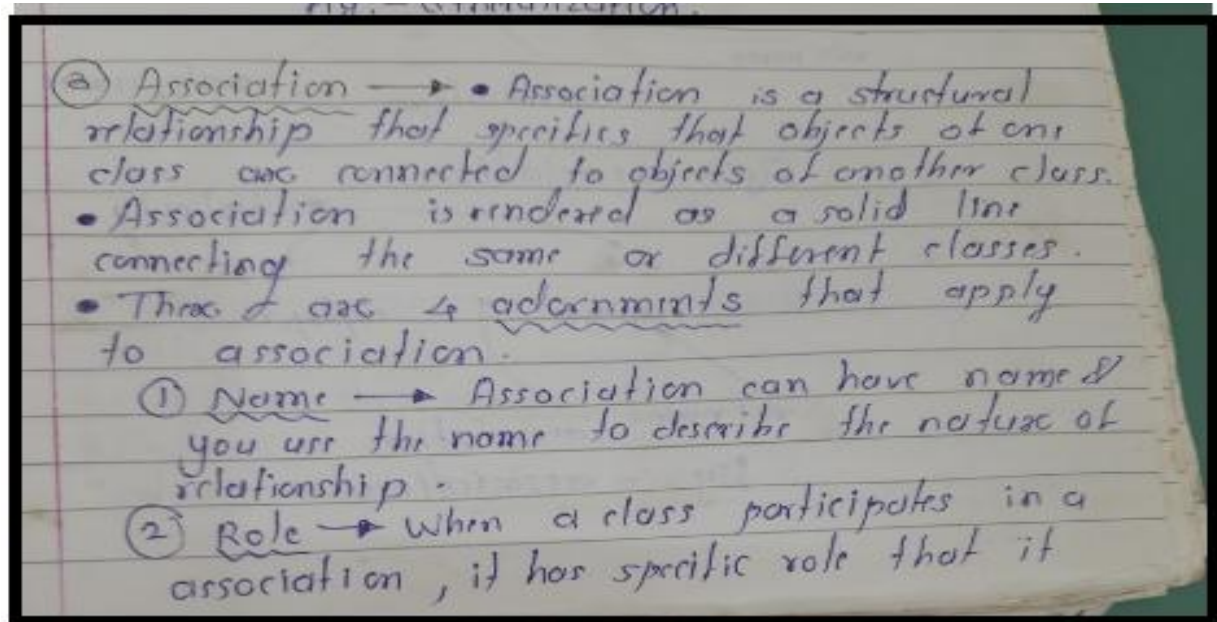 ③ Association → • Association is a structural
relationship that specifies that objects of one
class are connected to objects of another class.
• Association is rendered as a solid line
connecting the same or different classes.
• There are 4 adornments that apply
to association.
① Name → Association can have name &
you use the name to describe the nature of
relationship.
② Role → When a class participates in a
association, it has specific role that it